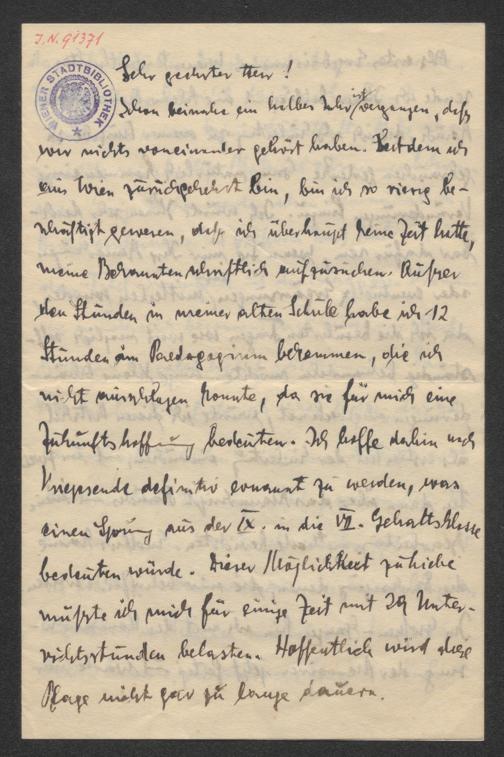 J.N. 91371
WIENER STADTBIBLIOTHEK
Sehr geehrter Herr!
Schon beinahe ein halbes Jahr ist vergangen, daß
wir nichts voneinander gehört haben. Seitdem ich
aus Wien zurückgekehrt bin, bin ich so riesig be-
schäftigt gewesen, daß ich überhaupt keine Zeit hatte,
meine Bekannten schriftlich aufzusuchen. Außer
den Stunden in meiner alten Schule habe ich 12
Stunden am Paedagogium bekommen, die ich
nicht ausschlagen konnte, da sie für mich eine
Zukunftshoffnung bedeuten. Ich hoffe dahin nach
Kriegsende definitiv ernannt zu werden, was
einen Sprung aus der IX. in die VII. Gehaltsklasse
bedeuten würde. Dieser Möglichkeit zuliebe
mußte ich mich für einige Zeit mit 29 Unter-
richtsstunden belasten. Hoffentlich wird diese
Plage nicht gar zu lange dauern.